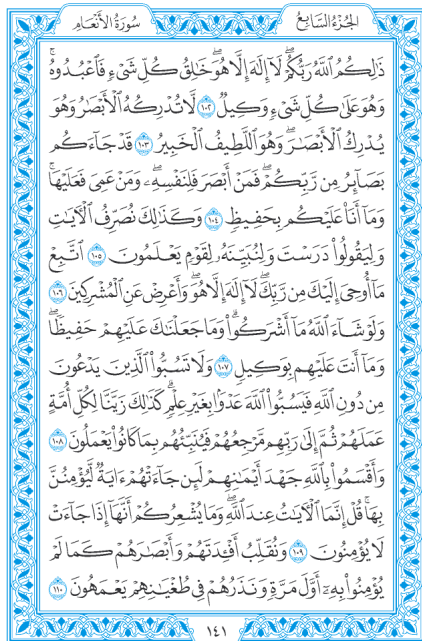 الجُزْءُ السَّابِعُ
سُورَةُ الأَنْعَامِ
ذَٰلِكُمُ ٱللَّهُ رَبُّكُمْۖ لَآ إِلَٰهَ إِلَّا هُوَۖ خَٰلِقُ كُلِّ شَىْءٍ فَٱعْبُدُوهُۚ
وَهُوَ عَلَىٰ كُلِّ شَىْءٍ وَكِيلٌ ١٠٢ لَّا تُدْرِكُهُ ٱلْأَبْصَٰرُ وَهُوَ
يُدْرِكُ ٱلْأَبْصَٰرَۖ وَهُوَ ٱللَّطِيفُ ٱلْخَبِيرُ ١٠٣ قَدْ جَآءَكُم
بَصَآئِرُ مِن رَّبِّكُمْۖ فَمَنْ أَبْصَرَ فَلِنَفْسِهِۦۖ وَمَنْ عَمِىَ فَعَلَيْهَاۚ
وَمَآ أَنَا۠ عَلَيْكُم بِحَفِيظٍ ١٠٤ وَكَذَٰلِكَ نُصَرِّفُ ٱلْءَايَٰتِ
وَلِيَقُولُوا۟ دَرَسْتَ وَلِنُبَيِّنَهُۥ لِقَوْمٍ يَعْلَمُونَ ١٠٥ ٱتَّبِعْ
مَآ أُوحِىَ إِلَيْكَ مِن رَّبِّكَۖ لَآ إِلَٰهَ إِلَّا هُوَۖ وَأَعْرِضْ عَنِ ٱلْمُشْرِكِينَ ١٠٦
وَلَوْ شَآءَ ٱللَّهُ مَآ أَشْرَكُوا۟ۗ وَمَا جَعَلْنَٰكَ عَلَيْهِمْ حَفِيظًاۖ
وَمَآ أَنتَ عَلَيْهِم بِوَكِيلٍ ١٠٧ وَلَا تَسُبُّوا۟ ٱلَّذِينَ يَدْعُونَ
مِن دُونِ ٱللَّهِ فَيَسُبُّوا۟ ٱللَّهَ عَدْوًۢا بِغَيْرِ عِلْمٍۗ كَذَٰلِكَ زَيَّنَّا لِكُلِّ أُمَّةٍ
عَمَلَهُمْ ثُمَّ إِلَىٰ رَبِّهِم مَّرْجِعُهُمْ فَيُنَبِّئُهُم بِمَا كَانُوا۟ يَعْمَلُونَ ١٠٨
وَأَقْسَمُوا۟ بِٱللَّهِ جَهْدَ أَيْمَٰنِهِمْ لَئِن جَآءَتْهُمْ ءَايَةٌ لَّيُؤْمِنُنَّ
بِهَاۚ قُلْ إِنَّمَا ٱلْءَايَٰتُ عِندَ ٱللَّهِۖ وَمَا يُشْعِرُكُمْ أَنَّهَآ إِذَا جَآءَتْ
لَا يُؤْمِنُونَ ١٠٩ وَنُقَلِّبُ أَفْـِٔدَتَهُمْ وَأَبْصَٰرَهُمْ كَمَا لَمْ
يُؤْمِنُوا۟ بِهِۦٓ أَوَّلَ مَرَّةٍ وَنَذَرُهُمْ فِى طُغْيَٰنِهِمْ يَعْمَهُونَ ١١٠
١٤١